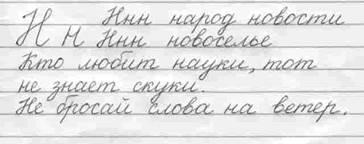 Н н Ннн народ новости
Ннн новоселье
Кто любит науки, тот
не знает скуки.
Не бросай слова на ветер.